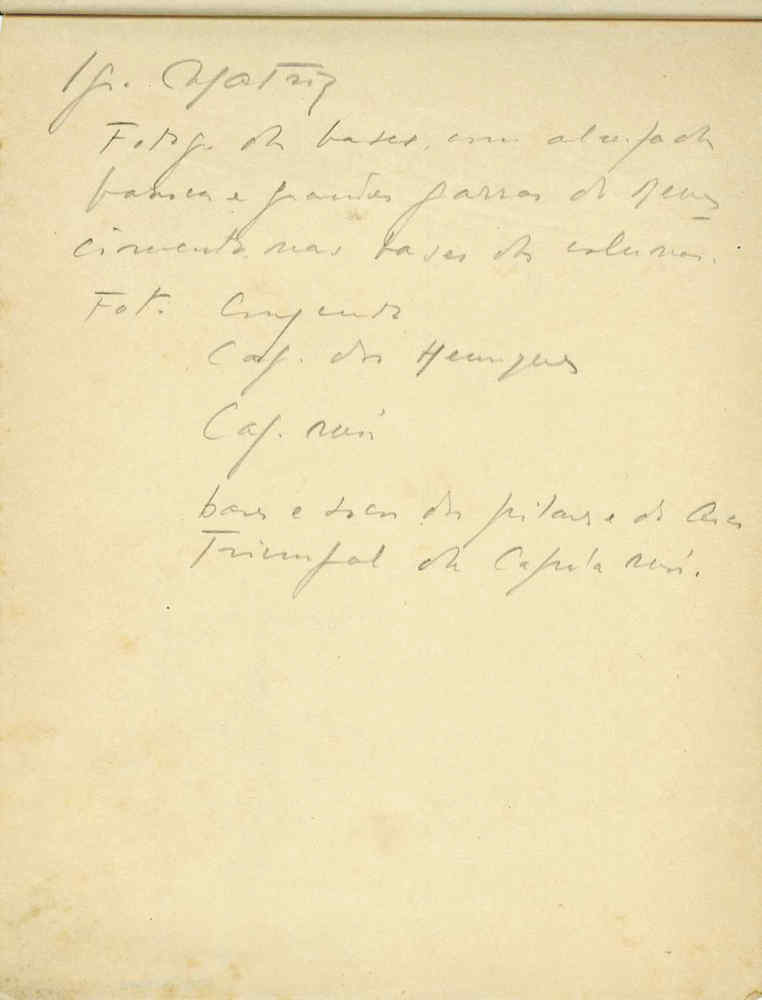 Ig. Matriz
Fotog. da bases, com almofada
e grandes garras de Renas
cimento nas bases das colunas.
Fot. Conjunto
Cap. dos Henriques
Cap. mór
bases e dos pilares e do Arco
Triumfal da Capela mór.